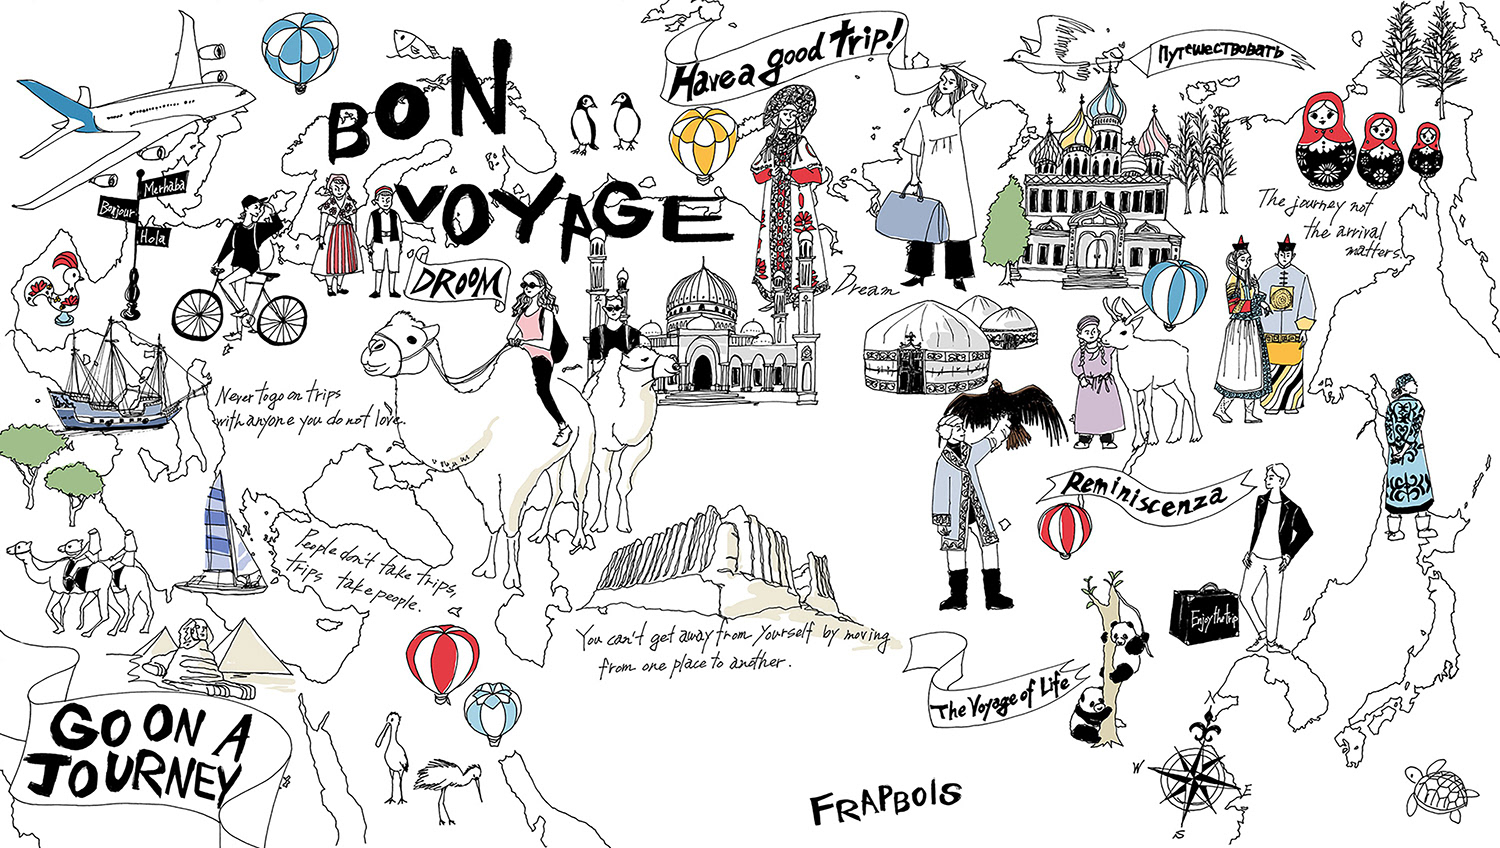 BON
VOYAGE
Have a good trip!
Путешествовать
Merhaba
Bonjour
Hola
DROOM
Dream
The journey not
the arrival
matters.
Never to go on trips
with anyone you do not love.
Reminiscenza
People don't take trips,
trips take people.
Enjoy the trip
You can't get away from yourself by moving
from one place to another.
The Voyage of Life
GO ON A
JOURNEY
FRAPBOIS
N
W
E
S